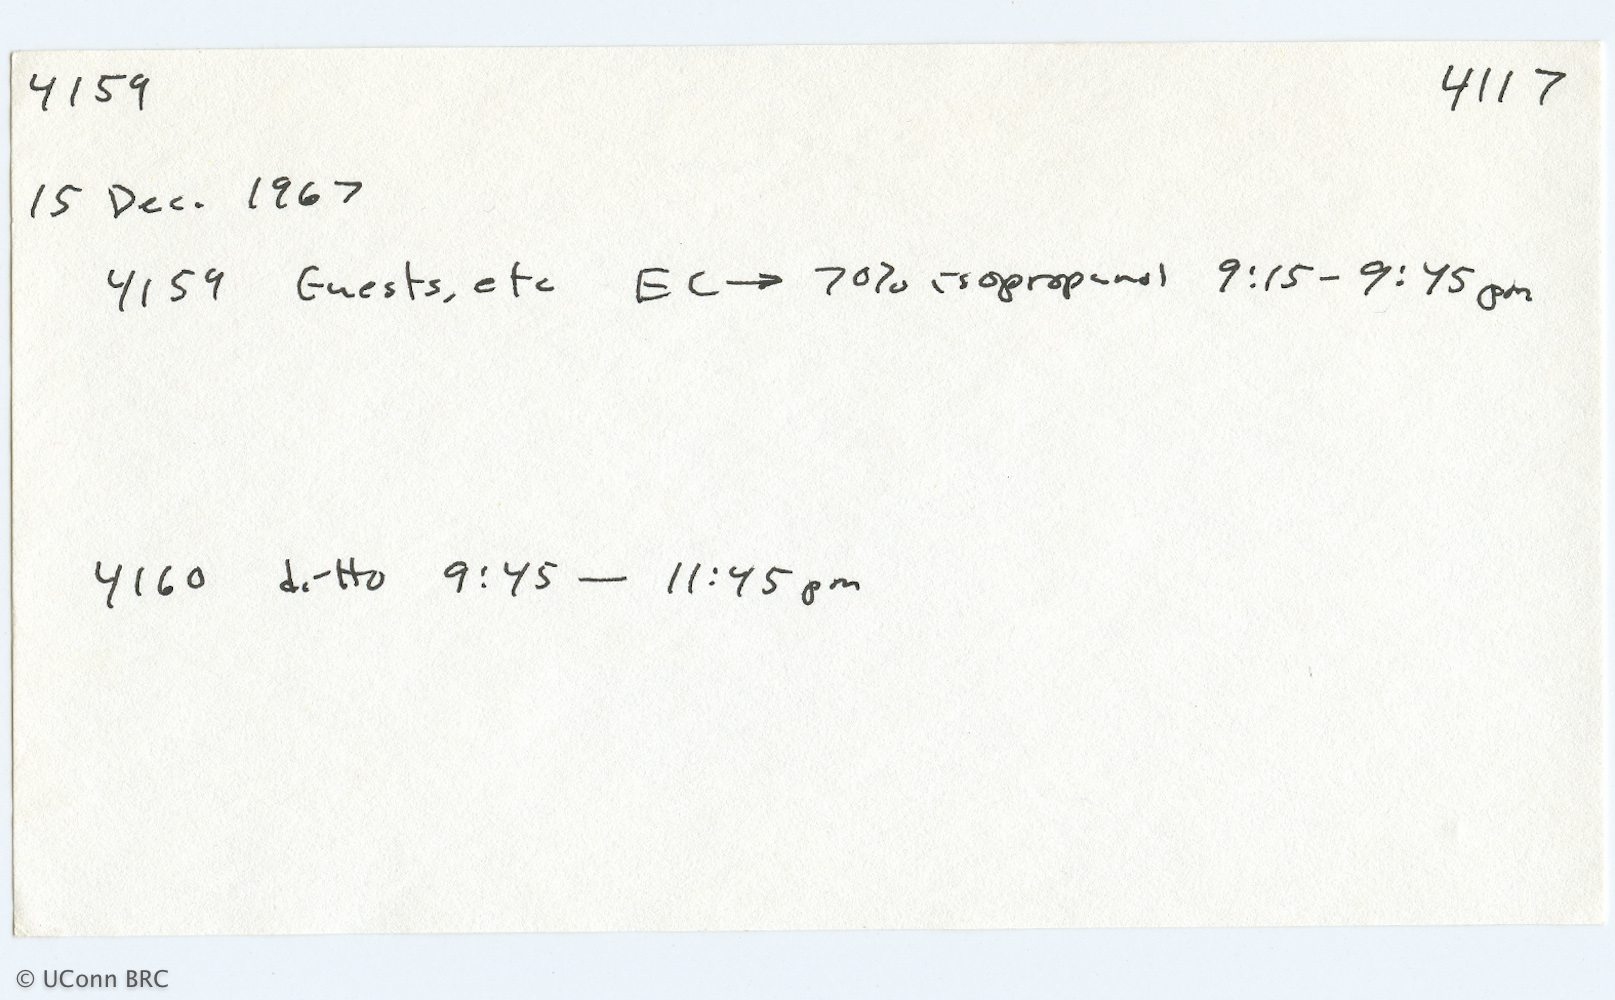 4159 4117
15 Dec. 1967
4159 Guests, etc EC → 70% isopropanol 9:15 - 9:45 pm
4160 ditto 9:45 — 11:45 pm
© UConn BRC